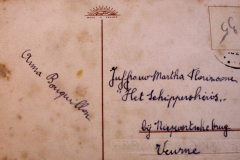 Anna Bouquillon
Juffrouw Martha
"Het Schippershuis"
bij Nieuwpoortsche brug
Veurne